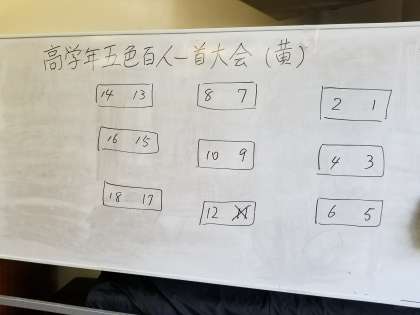 高学年五色百人一首大会(黄)
14 13
8 7
2 1
16 15
10 9
4 3
18 17
12
6 5